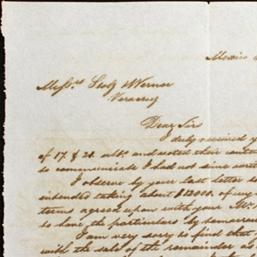 Mexico
Messrs. Werner
Veracruz
Dear Sir
I duly received y
of 17 & 21 ulto. and noted their
so communicate I had not since
I observe by your last letter
intended taking about $12000. of my
terms agreed upon with your Mr.
to have the particulars by tomorrow
I am very sorry to find that
with the sale of the remainder